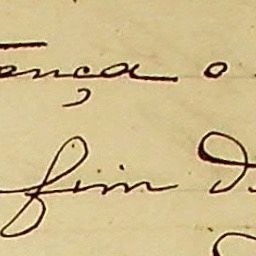 ença o
fim d